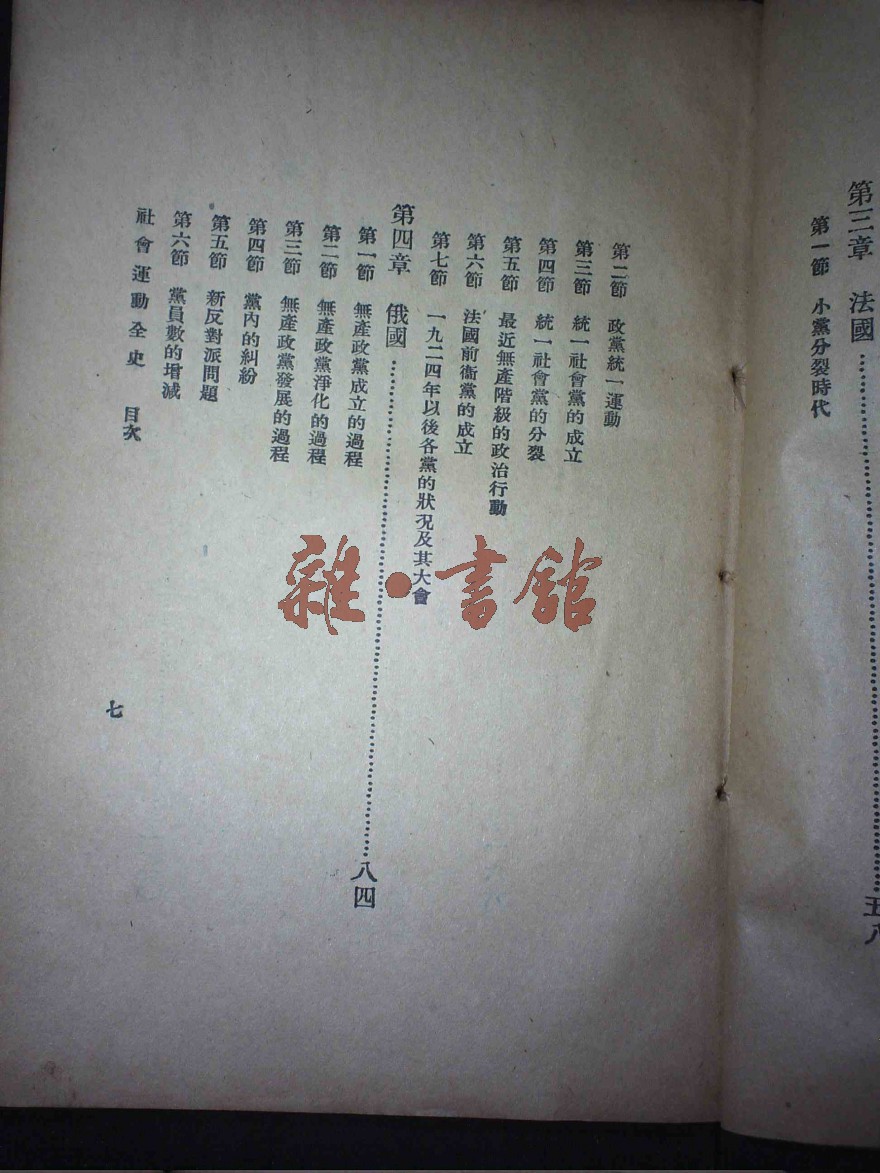 第三章　法國……五八
第一節　小黨分裂時代
第二節　政黨統一運動
第三節　統一社會黨的成立
第四節　統一社會黨的分裂
第五節　最近無產階級的政治行動
第六節　法國前衛黨的成立
第七節　一九二四年以後各黨的狀況及其大會
第四章　俄國……八四
第一節　無產政黨成立的過程
第二節　無產政黨淨化的過程
第三節　無產政黨發展的過程
第四節　黨內的糾紛
第五節　新反對派問題
第六節　黨員數的增減
社會運動全史　目次
七
雜·書館